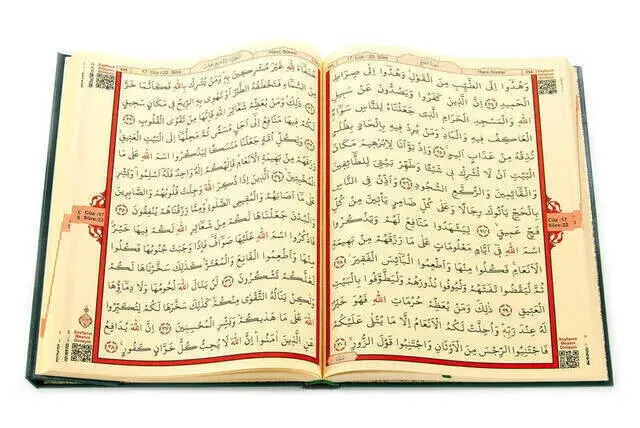 17. Cüz / 22. Sûre
Hacc Sûresi
وَهُدُٓوا اِلَى الطَّيِّبِ مِنَ الْقَوْلِ وَهُدُٓوا اِلٰى صِرَاطِ
الْحَمٖيدِ ﴿٢٤﴾ اِنَّ الَّذٖينَ كَفَرُوا وَيَصُدُّونَ عَنْ سَبٖيلِ
اللّٰهِ وَالْمَسْجِدِ الْحَرَامِ الَّذٖي جَعَلْنَاهُ لِلنَّاسِ سَوَٓاءً
الْعَاكِفُ فٖيهِ وَالْبَادِ وَمَنْ يُرِدْ فٖيهِ بِاِلْحَادٍ بِظُلْمٍ
نُذِقْهُ مِنْ عَذَابٍ اَلٖيمٍ ﴿٢٥﴾ وَاِذْ بَوَّأْنَا لِاِبْرٰهٖيمَ مَكَانَ
الْبَيْتِ اَنْ لَا تُشْرِكْ بٖي شَيْـًٔا وَطَهِّرْ بَيْتِيَ لِلطَّٓائِفٖينَ
وَالْقَٓائِمٖينَ وَالرُّكَّعِ السُّجُودِ ﴿٢٦﴾ وَاَذِّنْ فِي النَّاسِ
بِالْحَجِّ يَأْتُوكَ رِجَالًا وَعَلٰى كُلِّ ضَامِرٍ يَأْتٖينَ مِنْ كُلِّ
فَجٍّ عَمٖيقٍ ﴿٢٧﴾ لِيَشْهَدُوا مَنَافِعَ لَهُمْ وَيَذْكُرُوا
اسْمَ اللّٰهِ فٖٓي اَيَّامٍ مَعْلُومَاتٍ عَلٰى مَا رَزَقَهُمْ مِنْ بَهٖيمَةِ
الْاَنْعَامِ فَكُلُوا مِنْهَا وَاَطْعِمُوا الْبَٓائِسَ الْفَقٖيرَ ﴿٢٨﴾
ثُمَّ لْيَقْضُوا تَفَثَهُمْ وَلْيُوفُوا نُذُورَهُمْ وَلْيَطَّوَّفُوا بِالْبَيْتِ
الْعَتٖيقِ ﴿٢٩﴾ ذٰلِكَ وَمَنْ يُعَظِّمْ حُرُمَاتِ اللّٰهِ فَهُوَ خَيْرٌ
لَهُ عِنْدَ رَبِّهٖ وَاُحِلَّتْ لَكُمُ الْاَنْعَامُ اِلَّا مَا يُتْلٰى عَلَيْكُمْ
فَاجْتَنِبُوا الرِّجْسَ مِنَ الْاَوْثَانِ وَاجْتَنِبُوا قَوْلَ الزُّورِ ﴿٣٠﴾
Cüz :17
Sûre:22
17. Cüz / 22. Sûre
Hacc Sûresi
حُنَفَٓاءَ لِلّٰهِ غَيْرَ مُشْرِكٖينَ بِهٖ وَمَنْ يُشْرِكْ بِاللّٰهِ فَكَاَنَّمَا خَرَّ
مِنَ السَّمَٓاءِ فَتَخْطَفُهُ الطَّيْرُ اَوْ تَهْوٖي بِهِ الرّٖيحُ فٖي مَكَانٍ سَحٖيقٍ
﴿٣١﴾ ذٰلِكَ وَمَنْ يُعَظِّمْ شَعَٓائِرَ اللّٰهِ فَاِنَّهَا مِنْ تَقْوَى الْقُلُوبِ ﴿٣٢﴾
لَكُمْ فٖيهَا مَنَافِعُ اِلٰٓى اَجَلٍ مُسَمًّى ثُمَّ مَحِلُّهَٓا اِلَى الْبَيْتِ الْعَتٖيقِ
﴿٣٣﴾ وَلِكُلِّ اُمَّةٍ جَعَلْنَا مَنْسَكًا لِيَذْكُرُوا اسْمَ اللّٰهِ عَلٰى مَا
رَزَقَهُمْ مِنْ بَهٖيمَةِ الْاَنْعَامِ فَاِلٰهُكُمْ اِلٰهٌ وَاحِدٌ فَلَهُٓ اَسْلِمُوا وَبَشِّرِ
الْمُخْبِتٖينَ ﴿٣٤﴾ اَلَّذٖينَ اِذَا ذُكِرَ اللّٰهُ وَجِلَتْ قُلُوبُهُمْ وَالصَّابِرٖينَ
عَلٰى مَٓا اَصَابَهُمْ وَالْمُقٖيمِي الصَّلٰوةِ وَمِمَّا رَزَقْنَاهُمْ يُنْفِقُونَ ﴿٣٥﴾
وَالْبُدْنَ جَعَلْنَاهَا لَكُمْ مِنْ شَعَٓائِرِ اللّٰهِ لَكُمْ فٖيهَا خَيْرٌ
فَاذْكُرُوا اسْمَ اللّٰهِ عَلَيْهَا صَوَٓافَّ فَاِذَا وَجَبَتْ جُنُوبُهَا فَكُلُوا
مِنْهَا وَاَطْعِمُوا الْقَانِعَ وَالْمُعْتَرَّ كَذٰلِكَ سَخَّرْنَاهَا لَكُمْ
لَعَلَّكُمْ تَشْكُرُونَ ﴿٣٦﴾ لَنْ يَنَالَ اللّٰهَ لُحُومُهَا وَلَا دِمَٓاؤُهَا
وَلٰكِنْ يَنَالُهُ التَّقْوٰى مِنْكُمْ كَذٰلِكَ سَخَّرَهَا لَكُمْ لِتُكَبِّرُوا
اللّٰهَ عَلٰى مَا هَدٰيكُمْ وَبَشِّرِ الْمُحْسِنٖينَ ﴿٣٧﴾ اِنَّ اللّٰهَ يُدَافِعُ
عَنِ الَّذٖينَ اٰمَنُوا اِنَّ اللّٰهَ لَا يُحِبُّ كُلَّ خَوَّانٍ كَفُورٍ ﴿٣٨﴾
Cüz :17
Sûre:22